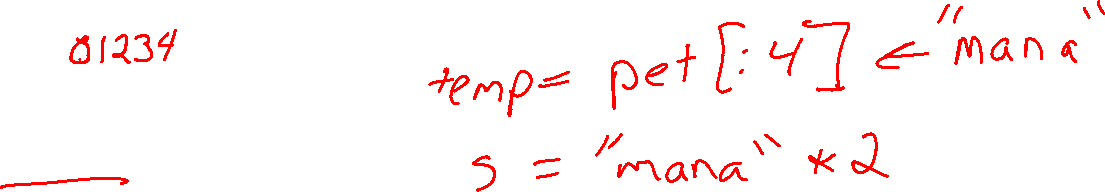 01234
temp= pet[:4] ← "mana"
s = "mana" * 2